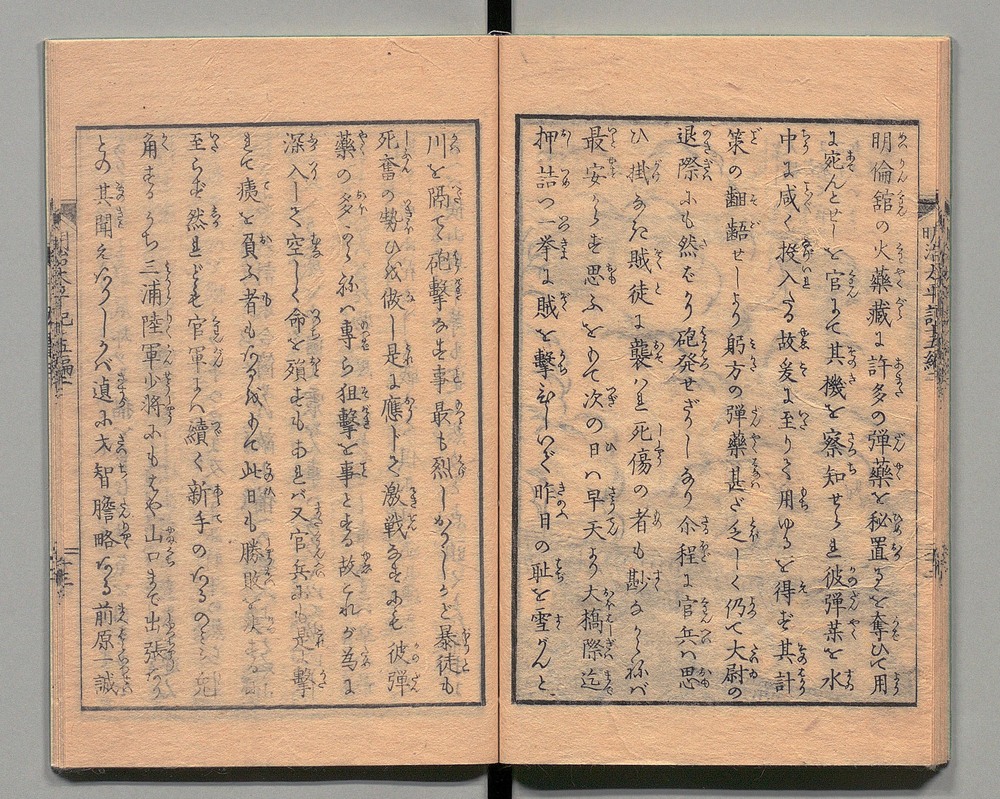 明倫舘の火藥藏に許多の弾藥を秘置るを奪ひて用
に宛んとせしを官にて其機を察知せられ彼弾薬を水
中に咸く投入たる故爰に至りて用ゆるを得ず其計
策の齟齬せしより躬方の弾藥甚だ乏しく仍て大尉の
退際にも然のみ砲発せざりしなり介程に官兵ハ思
ひ掛なき賊徒に襲はれ死傷の者も尠なからねバ
最安からず思ふをもて次の日ハ早天より大橋際迄
押詰つ一挙に賊を撃
昨日の耻を雪がんと
川を隔て砲撃なす事最も烈しかりしかど暴徒も
死奮の勢ひを做し是に應じて激戦なすにも彼弾
藥の多からねバ専ら狙撃を事とする故これが為に
深入して空しく命を殞すもあれバ又官兵にも是に撃
れて痍を負ふ者もなるをもて此日も勝敗を
至らず然れども官軍にハ續く新手のなるのミ
角するうち三浦陸軍少将にもはや山口まで出張なり
との其聞えなりしかバ遉に才智膽略なる前原一誠
明治太平記五編
明治太平記五編